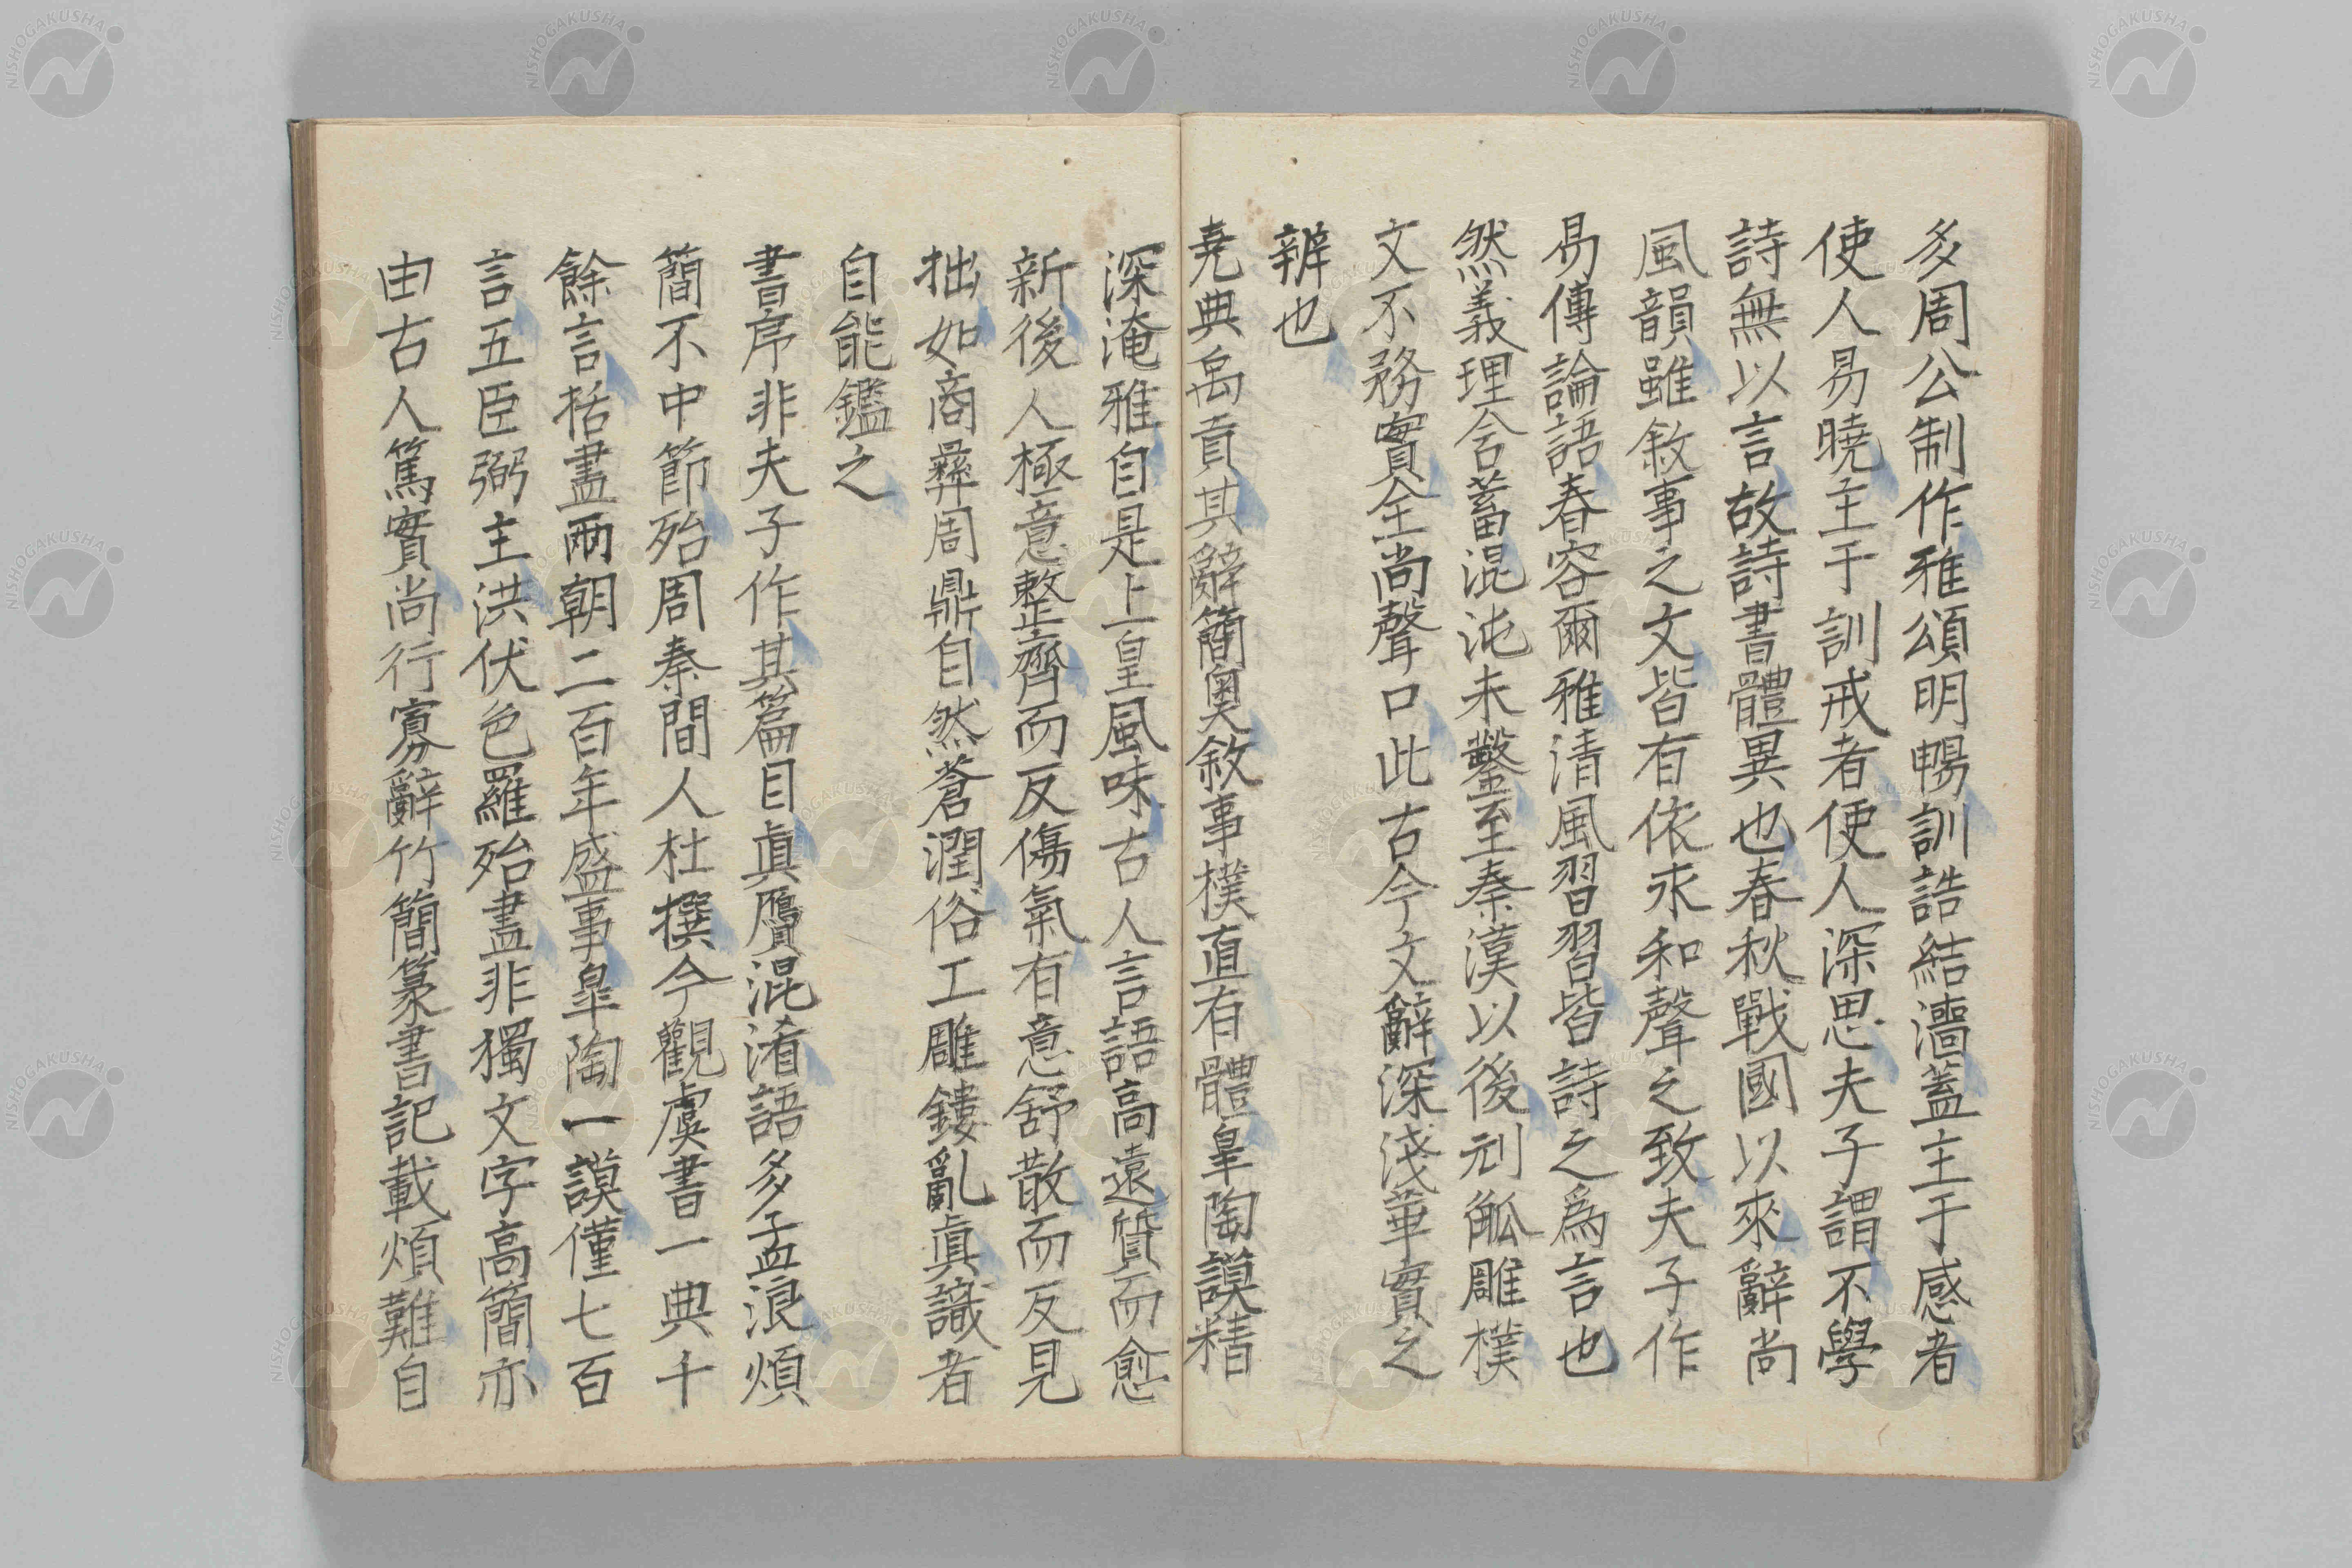 多周公制作雅頌明暢訓誥結濇蓋主于感者
使人易曉主于訓戒者便人深思夫子謂不學
詩無以言故詩書體異也春秋戰國以來辭尚
風韻雖敘事之文皆有依永和聲之致夫子作
易傳論語春容爾雅清風習習皆詩之爲言也
然義理含蓄混沌未鑿至秦漢以後刓觚雕樸
文不務實全尚聲口此古今文辭深淺華實之
辨也
堯典禹貢其辭簡奧敘事樸直有體皐陶謨精
深淹雅自是上皇風味古人言語高遠質而愈
新後人極意整齊而反傷氣有意舒散而反見
拙如商彝周鼎自然蒼潤俗工雕鏤亂眞識者
自能鑑之
書序非夫子作其篇目眞贋混淆語多孟浪煩
簡不中節殆周秦間人杜撰今觀虞書一典千
餘言括盡兩朝二百年盛事皐陶一謨僅七百
言五臣弼主洪伏色羅殆盡非獨文字高簡亦
由古人篤實尚行寡辭竹簡篆書記載煩難自
NISHOGAKUSHA